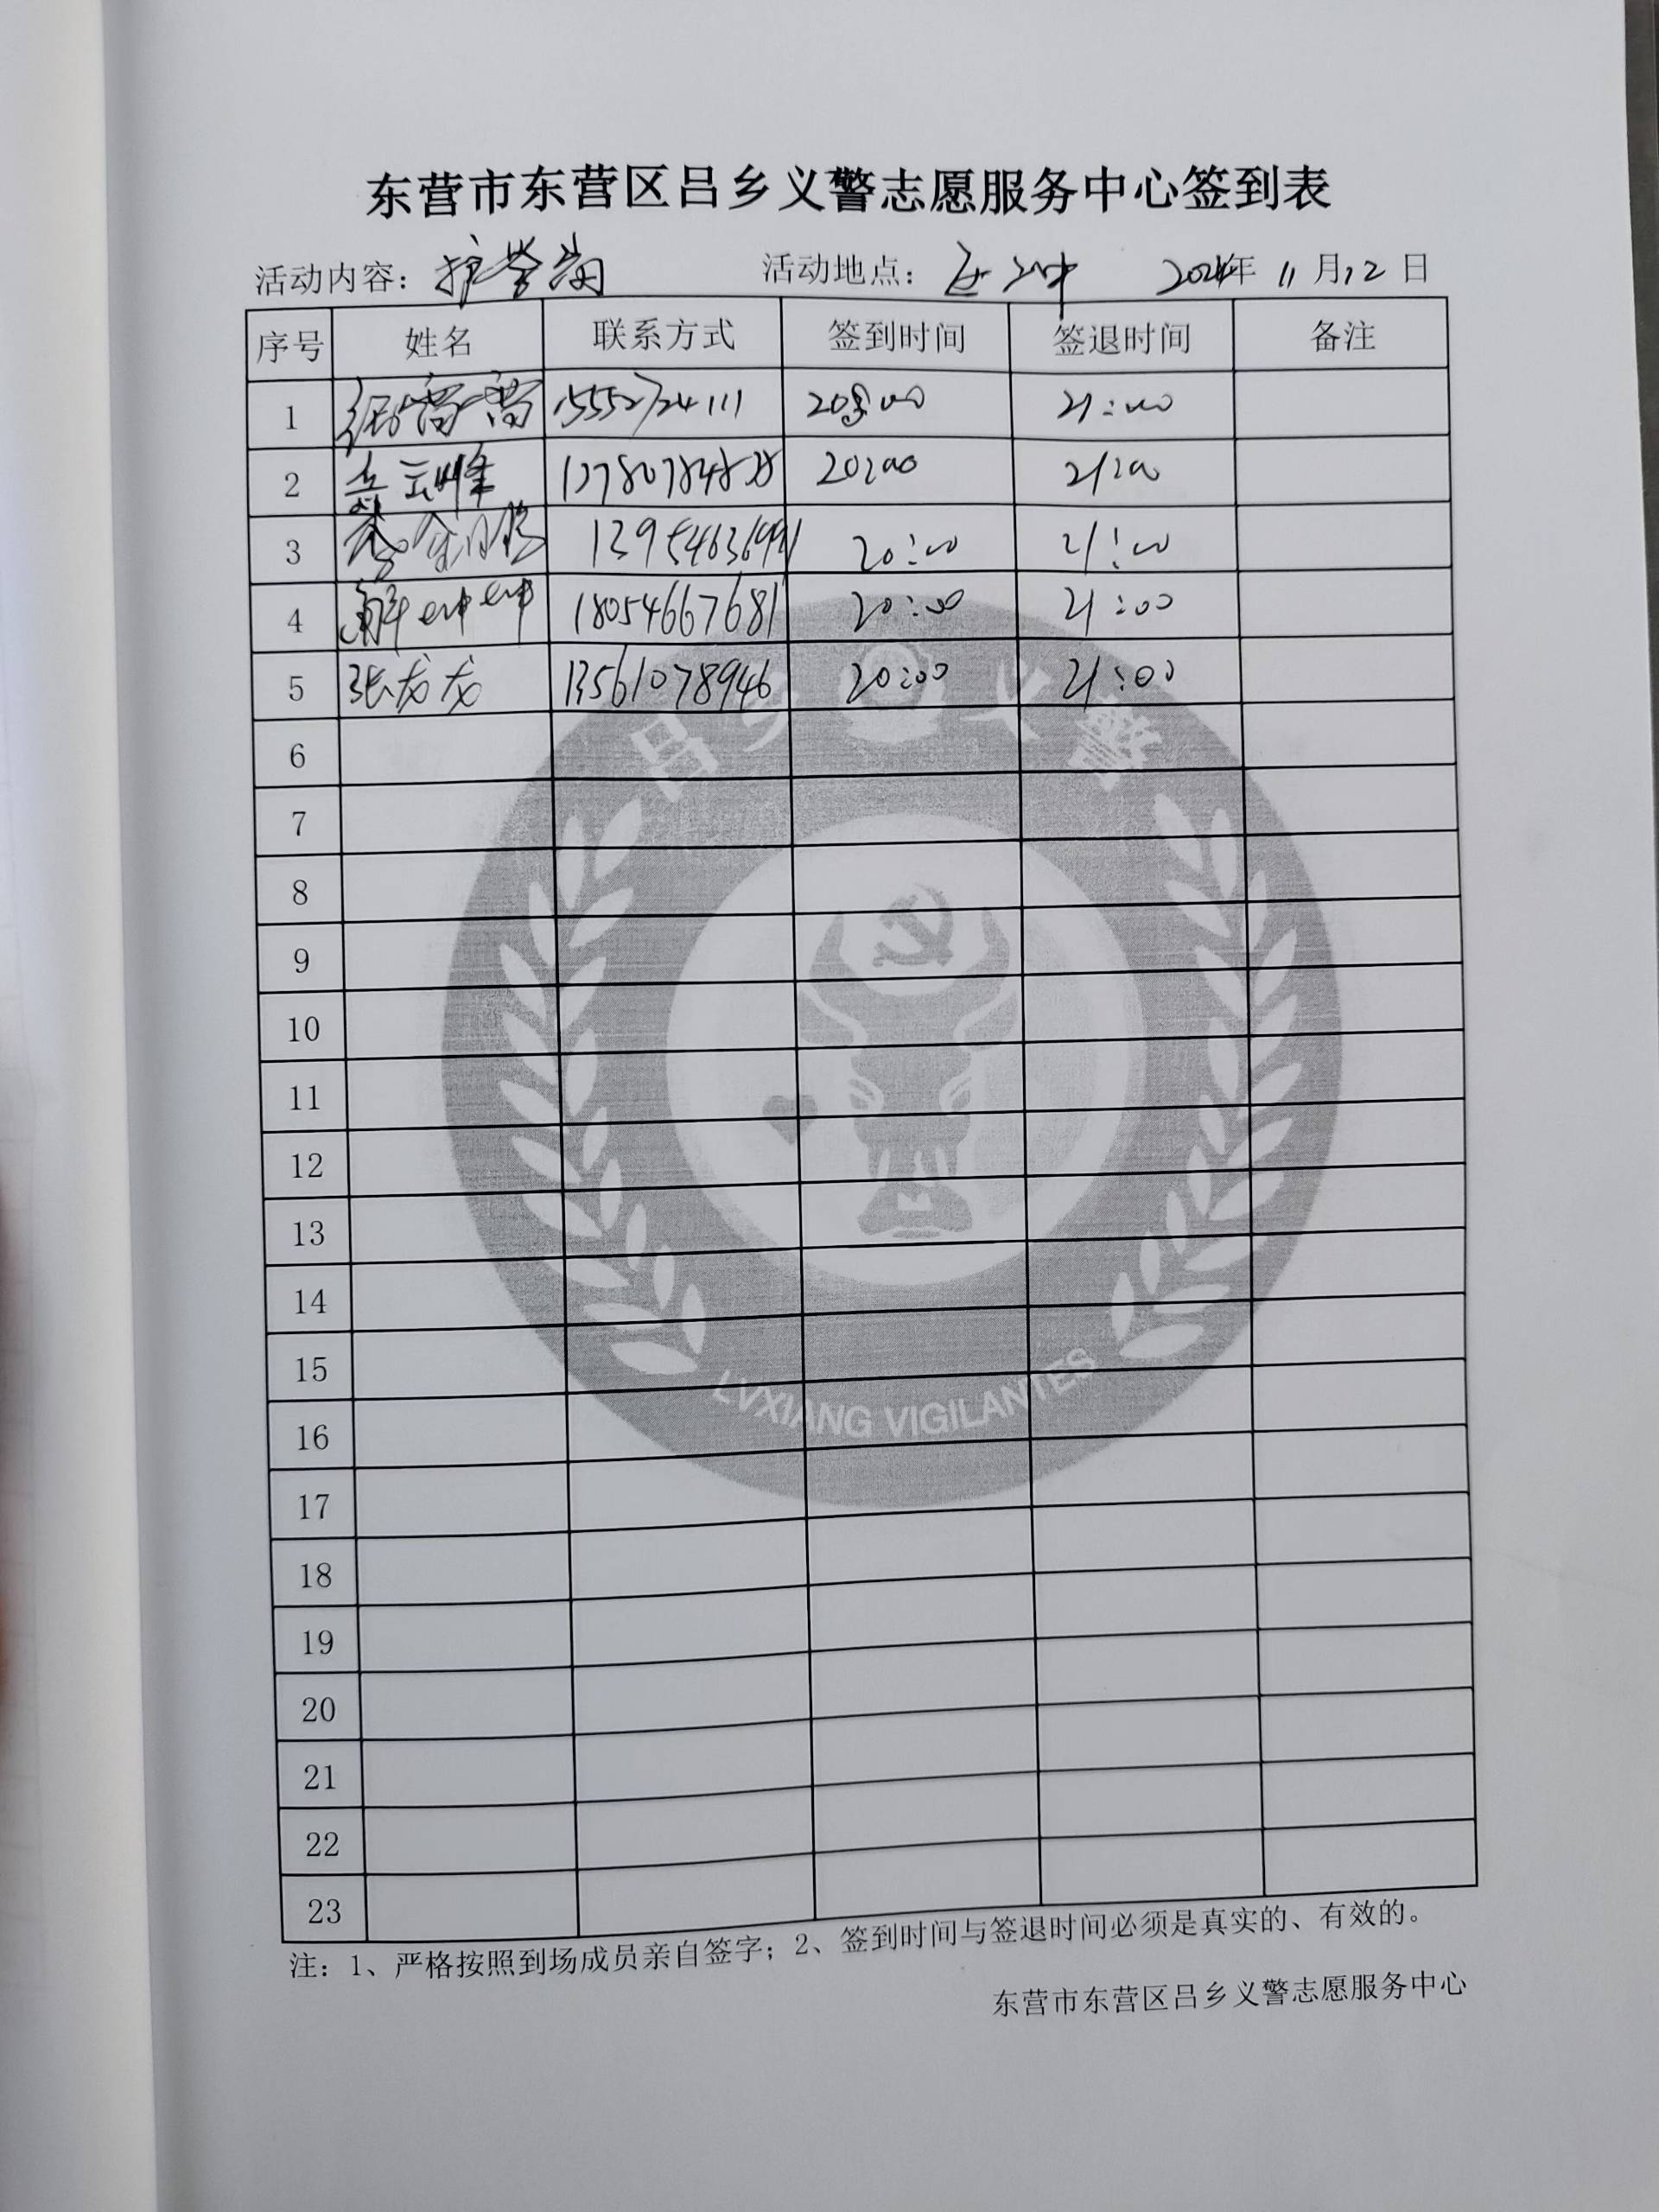 东营市东营区吕乡义警志愿服务中心签到表
活动内容：护学岗 活动地点： 2024年 11月12日
序号 姓名 联系方式 签到时间 签退时间 备注
1 15552724111 20:00 21:00
2 岳云峰 20:00 21:00
3 20:00 21:00
4 解中中 18054667681 20:00 21:00
5 张龙龙 13561078946 20:00 21:00
6
7
8
9
10
11
12
13
14
15
16
17
18
19
20
21
22
23
吕乡义警
LVXIANG VIGILANTES
注：1、严格按照到场成员亲自签字；2、签到时间与签退时间必须是真实的、有效的。
东营市东营区吕乡义警志愿服务中心